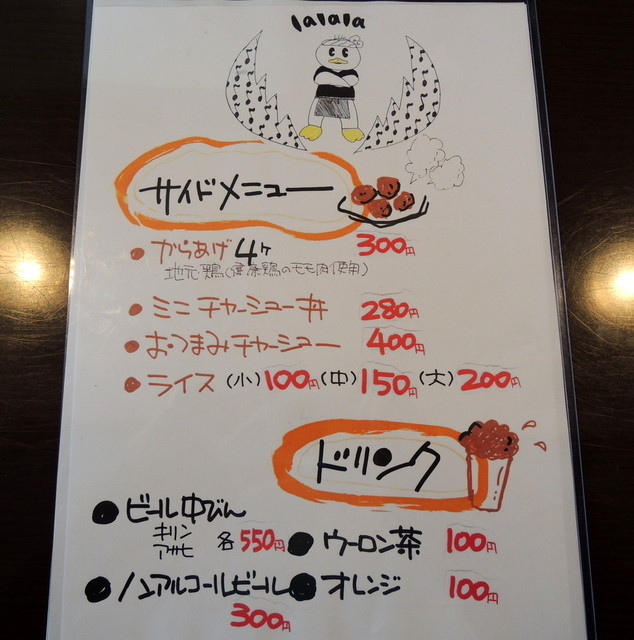 lalala
サイドメニュー
からあげ 4ヶ 300円
地元鶏(健康鶏のモモ肉使用)
ミニチャーシュー丼 280円
おつまみチャーシュー 400円
ライス (小)100円 (中)150円 (大)200円
ドリンク
ビール中びん
キリン
アサヒ 各550円
ウーロン茶 100円
ノンアルコールビール
300円
オレンジ 100円